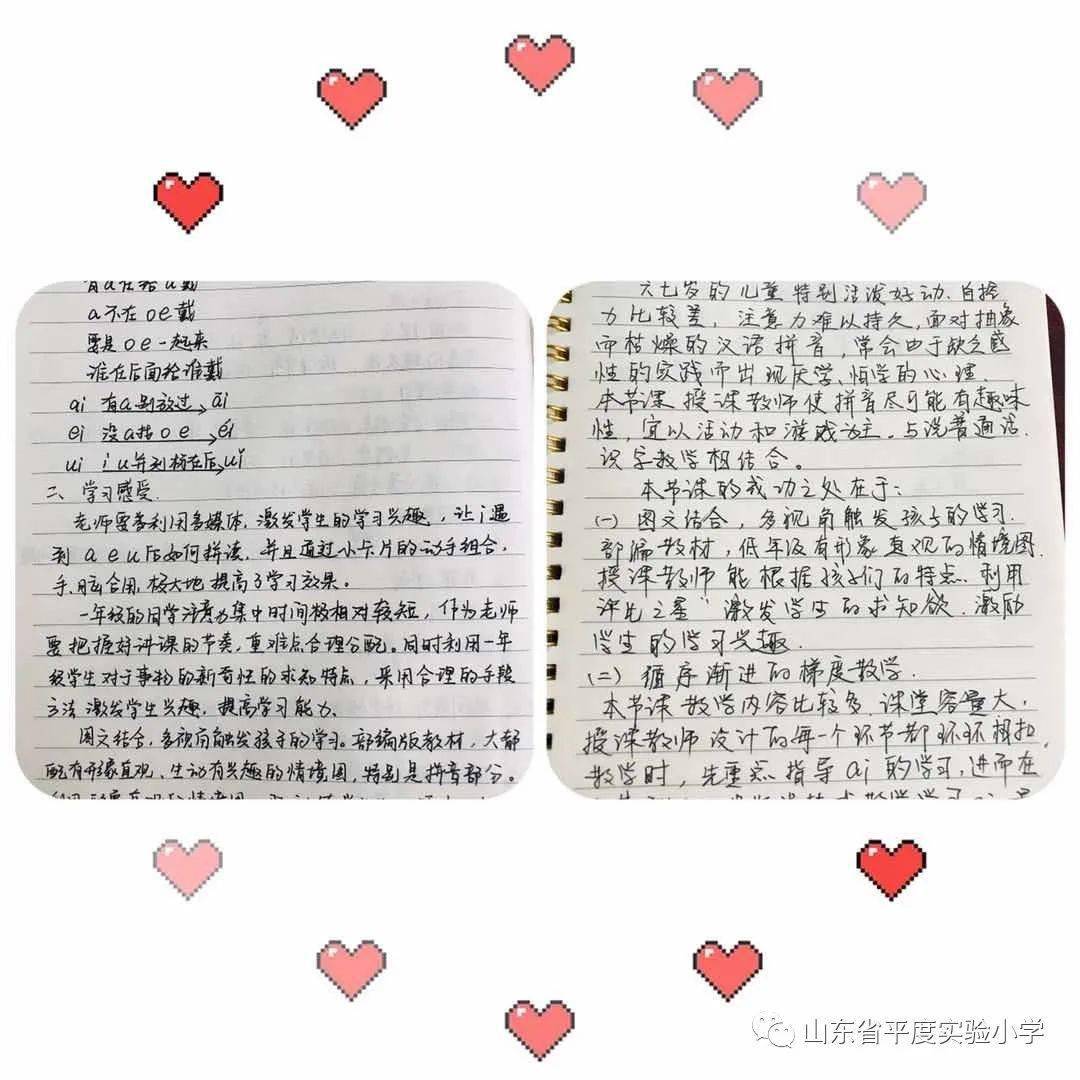 有a在给a戴
a不在oe戴
要是oe一起来
谁在后面给谁戴
ai 有a别放过→āi
ei 没a找oe→ēi
ui i u并列标在后→uī
二、学习感受.
老师要善利用多媒体,激发学生的学习兴趣,让i遇
到a e u后如何拼读,并且通过小卡片的动手组合,
手、脑合用,极大地提高了学习效果。
一年级的同学注意力集中时间极相对较短,作为老师
要把握好讲课的节奏,重难点合理分配。同时利用一年
级学生对于事物的新奇性的求知特点,采用合理的手段
方法激发学生兴趣,提高学习能力.
图文结合,多视角触发孩子的学习。部编版教材,大都
配有形象直观、生动有兴趣的情境图,特别是拼音部分。
六七岁的儿童特别活泼好动.自控
力比较差,注意力难以持久,面对抽象
而枯燥的汉语拼音,常会由于缺乏感
性的实践而出现厌学、怕学的心理
本节课,授课教师使拼音尽可能有趣味
性,宜以活动和游戏为主.与说普通话.
识字教学相结合。
本节课的成功之处在于:
(一)图文结合,多视角触发孩子的学习.
部编教材,低年级有形象直观的情境图.
授课教师能根据孩子们的特点.利用
评比之星"激发学生的求知欲.激励
学生的学习兴趣.
(二)循序渐进的梯度教学.
本节课教学内容比较多.课堂容量大,
授课教师设计的每一个环节都环环相扣,
教学时,先重点指导ai的学习,进而在
山东省平度实验小学